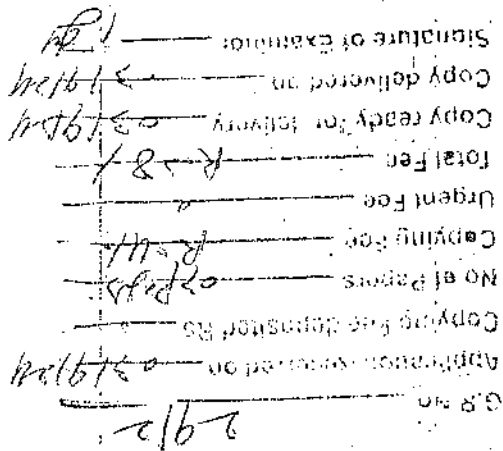 G.R No 2912
Application received on 03/9/24
Copying Fee deposited Rs
No of Papers 02 Pages
Copying Fee
Urgent Fee
Total Fee
Copy ready for delivery 03/9/24
Copy delivered on 3/9/24
Signature of Examiner